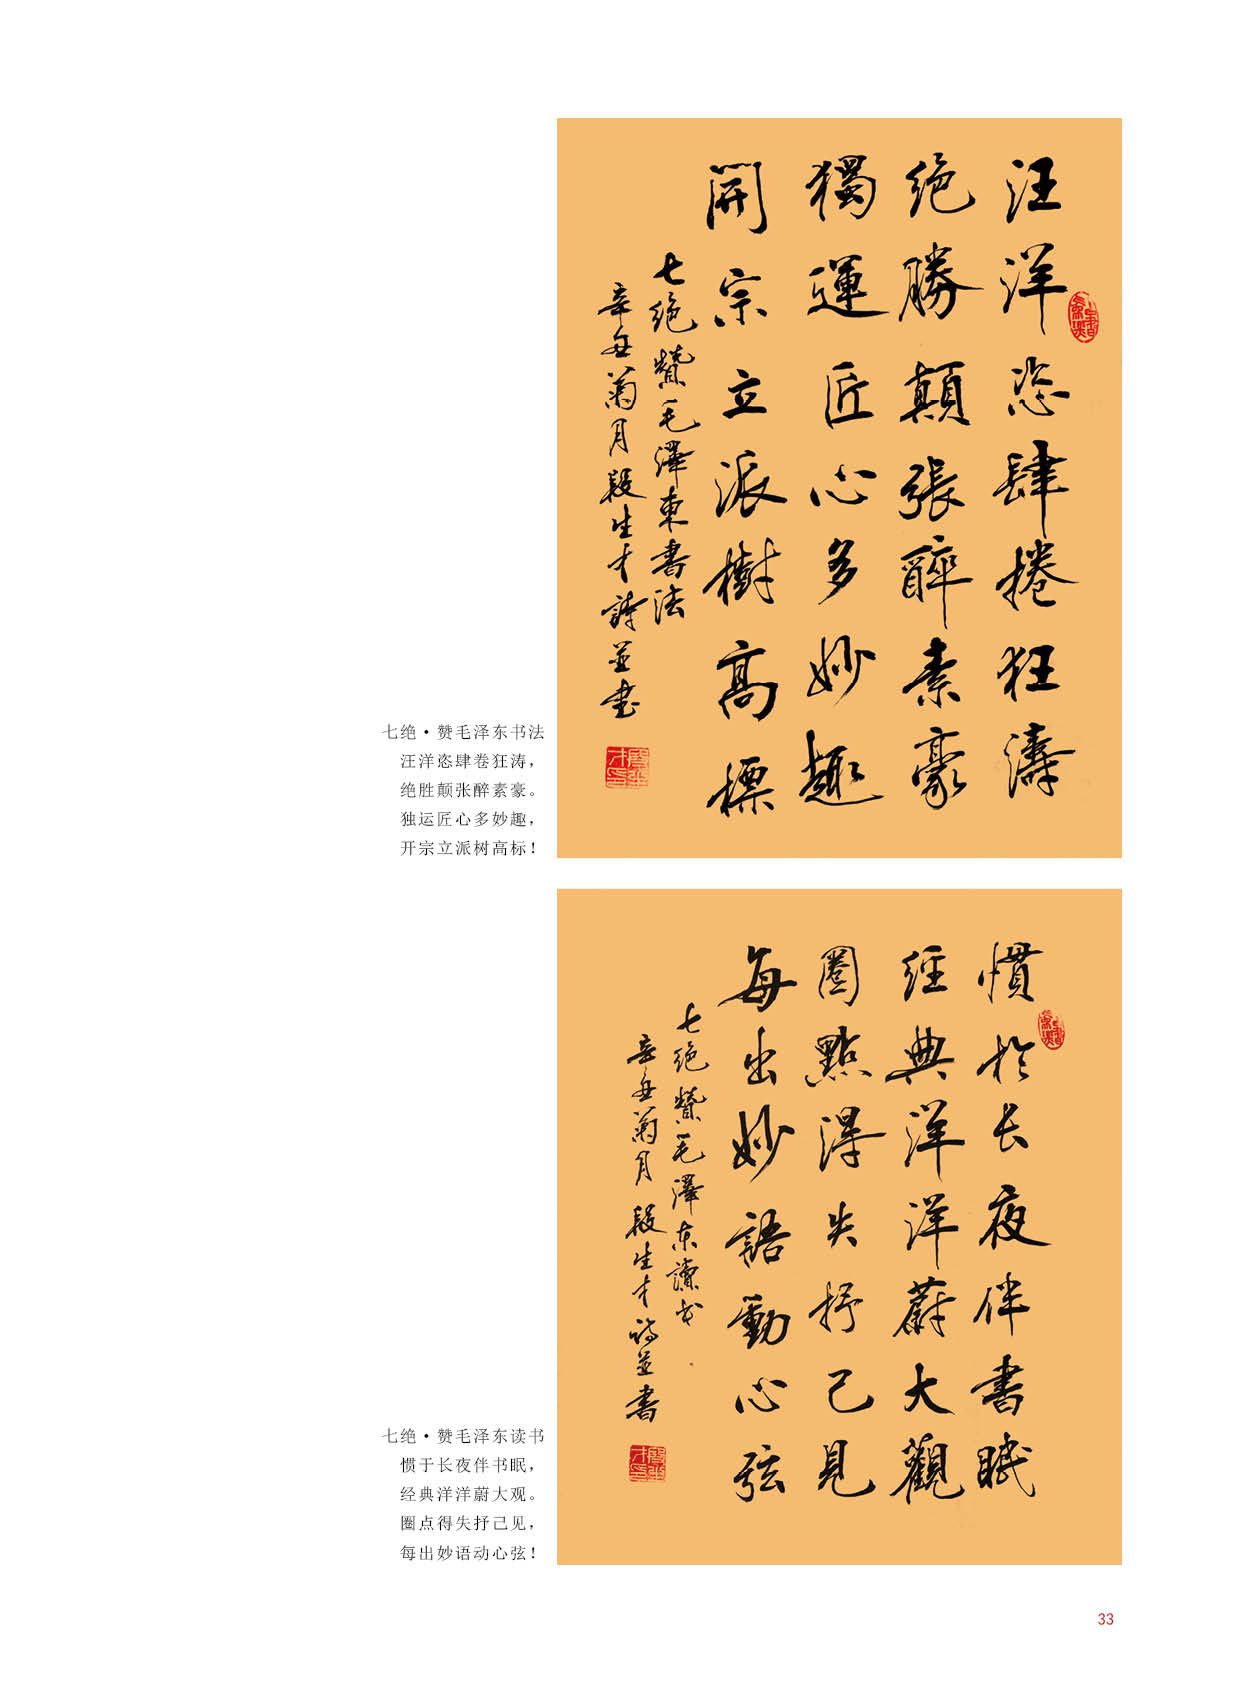 汪洋恣肆捲狂濤
绝勝顛張醉素豪
獨運匠心多妙趣
開宗立派樹高標
七绝贊毛澤東書法
辛丑菊月段生才詩並書
七绝·赞毛泽东书法
汪洋恣肆卷狂涛，
绝胜颠张醉素豪。
独运匠心多妙趣，
开宗立派树高标！
慣於长夜伴書眠
经典洋洋蔚大觀
圈點得失抒己見
每出妙語動心弦
七绝贊毛澤东讀书
辛丑菊月段生才诗並書
七绝·赞毛泽东读书
惯于长夜伴书眠，
经典洋洋蔚大观。
圈点得失抒己见，
每出妙语动心弦！
33